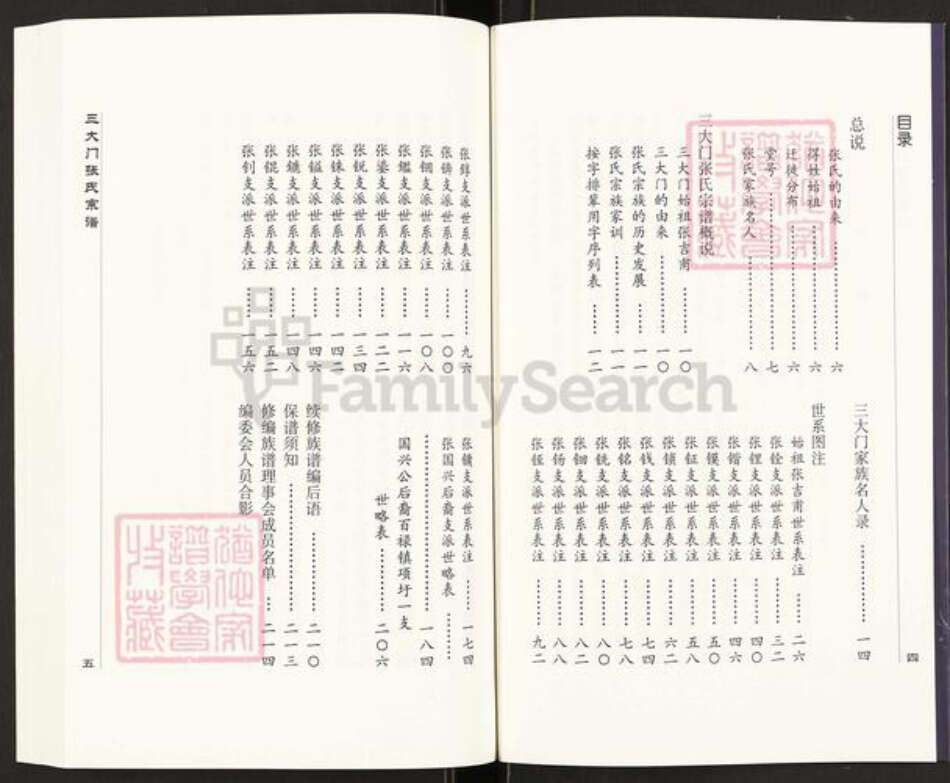 目录
总说
张氏的由来 六
得姓始祖 六
迁徙分布 六
堂号 七
张氏家族名人 八
三大门张氏宗谱概说
三大门始祖张吉甫 一〇
三大门的由来 一〇
张氏宗族的历史发展 一一
张氏宗族家训 一一
按字排辈用字序列表 一二
三大门家族名人录 一四
世系图注
始祖张吉甫世系表注 二六
张铨支派世系表注 三二
张锂支派世系表注 四〇
张锴支派世系表注 四六
张镆支派世系表注 五〇
张钲支派世系表注 五八
张锁支派世系表注 六二
张钱支派世系表注 七四
张铭支派世系表注 七八
张铣支派世系表注 八〇
张钿支派世系表注 八二
张钖支派世系表注 八八
张铚支派世系表注 九二
四
三大门张氏宗谱
张锌支派世系表注 九六
张铸支派世系表注 一〇〇
张铟支派世系表注 一〇八
张鑑支派世系表注 一一六
张鎏支派世系表注 一二二
张锐支派世系表注 一三四
张铢支派世系表注 一四二
张镒支派世系表注 一四六
张镳支派世系表注 一四八
张锟支派世系表注 一五二
张钊支派世系表注 一五六
张镛支派世系表注 一七四
张国兴后裔支派世略表
国兴公后裔百禄镇项圩一支 一八四
世略表 二〇六
续修族谱编后语 二一〇
保谱须知 二一三
修编族谱理事会成员名单 二一四
编委会人员合影
五
FamilySearch